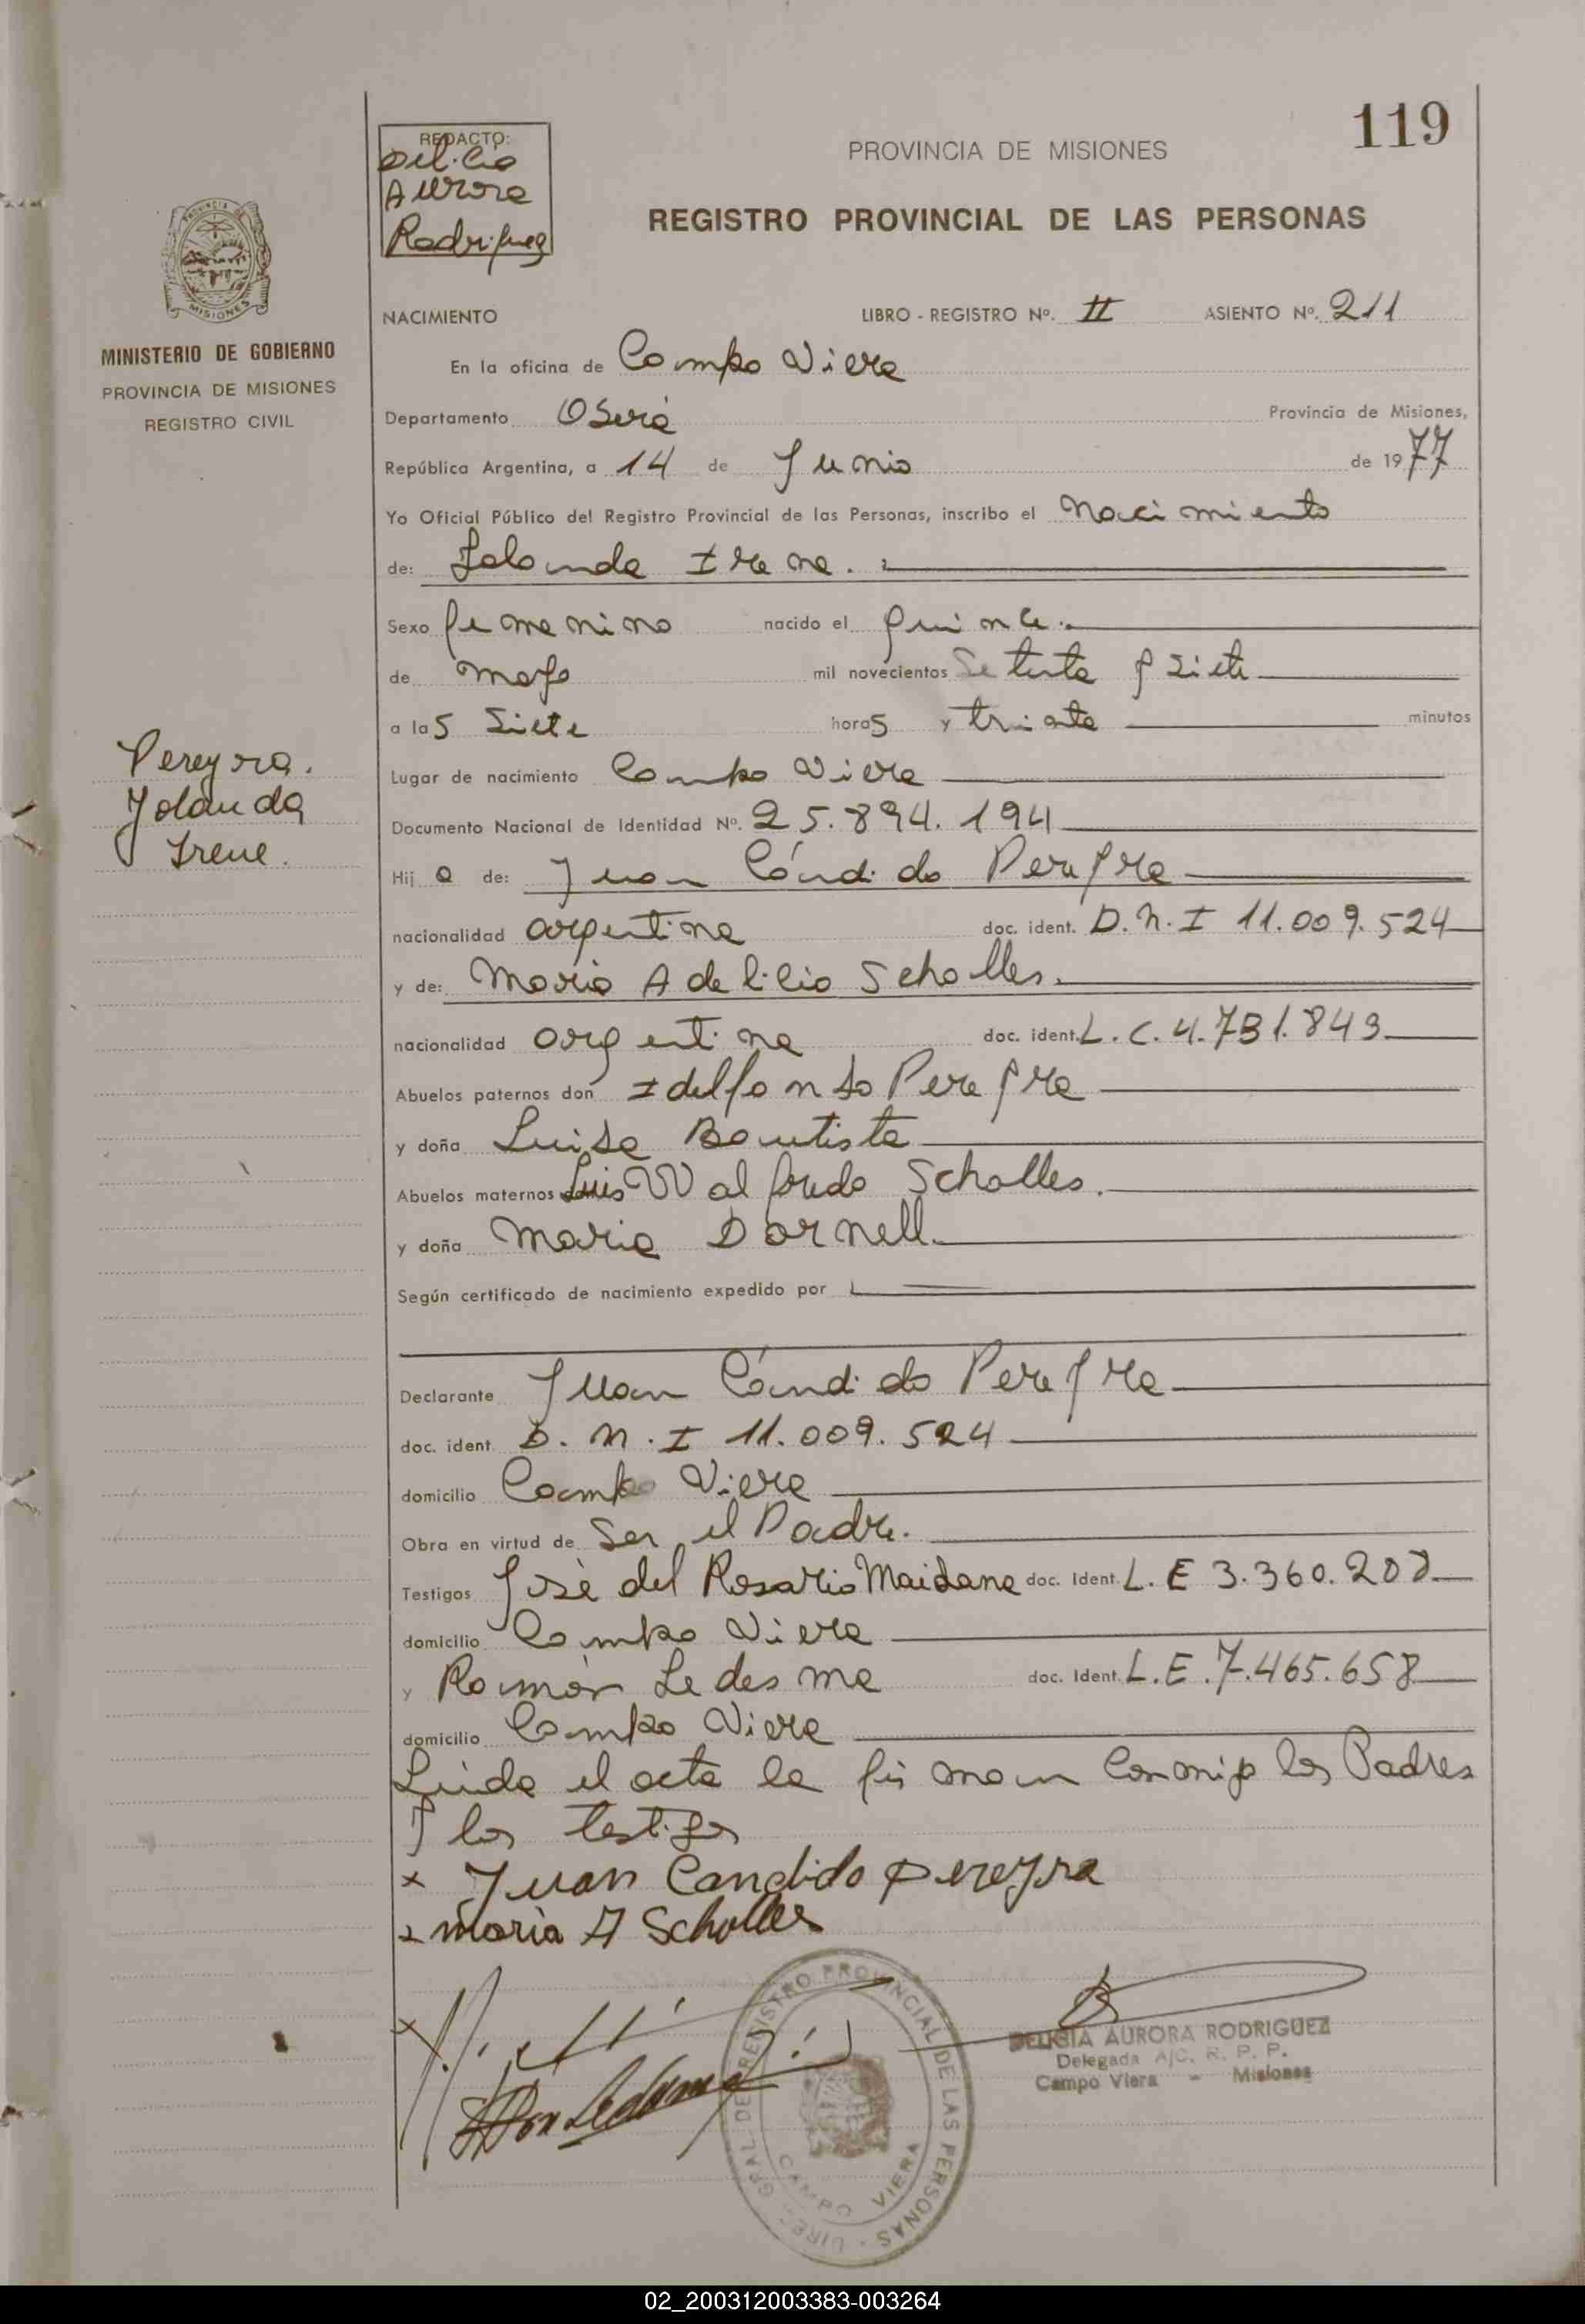 119
REDACTO:
Delicia
Aurora
Rodriguez
PROVINCIA DE MISIONES
REGISTRO PROVINCIAL DE LAS PERSONAS
PROVINCIA
MISIONES
MINISTERIO DE GOBIERNO
PROVINCIA DE MISIONES
REGISTRO CIVIL
NACIMIENTO LIBRO - REGISTRO Nº. II ASIENTO Nº. 211
En la oficina de Campo Viera
Departamento Oberá Provincia de Misiones,
República Argentina, a 14 de Junio de 1977
Yo Oficial Público del Registro Provincial de las Personas, inscribo el Nacimiento
de: Jolanda Irene.
Sexo femenino nacido el quince.
de mayo mil novecientos Setenta y Siete
a las Siete horas y treinta minutos
Pereyra.
Jolanda
Irene.
Lugar de nacimiento Campo Viera
Documento Nacional de Identidad Nº. 25.894.194
Hija de: Juan Cándido Pereyra
nacionalidad argentina doc. ident. D.N.I 11.009.524
y de: Maria Adelicia Scholles.
nacionalidad argentina doc. ident. L.C. 4.731.843
Abuelos paternos don Idelfonso Pereyra
y doña Luisa Bautista
Abuelos maternos Luis Walfredo Scholles.
y doña Maria Dornell.
Según certificado de nacimiento expedido por
Declarante Juan Cándido Pereyra
doc. ident. D.N.I 11.009.524
domicilio Campo Viera
Obra en virtud de Ser el Padre.
Testigos José del Rosario Maidana doc. Ident. L.E 3.360.208
domicilio Campo Viera
y Ramón Ledesma doc. Ident. L.E. 7.465.658
domicilio Campo Viera
Leida el acta la firman conmigo los Padres
y los testigos
x Juan Candido Pereyra
x maria A Scholles
DIREC. GRAL. DE REGISTRO PROVINCIAL DE LAS PERSONAS
CAMPO VIERA
DELICIA AURORA RODRIGUEZ
Delegada A/C. R. P. P.
Campo Viera - Misiones
02_200312003383-003264